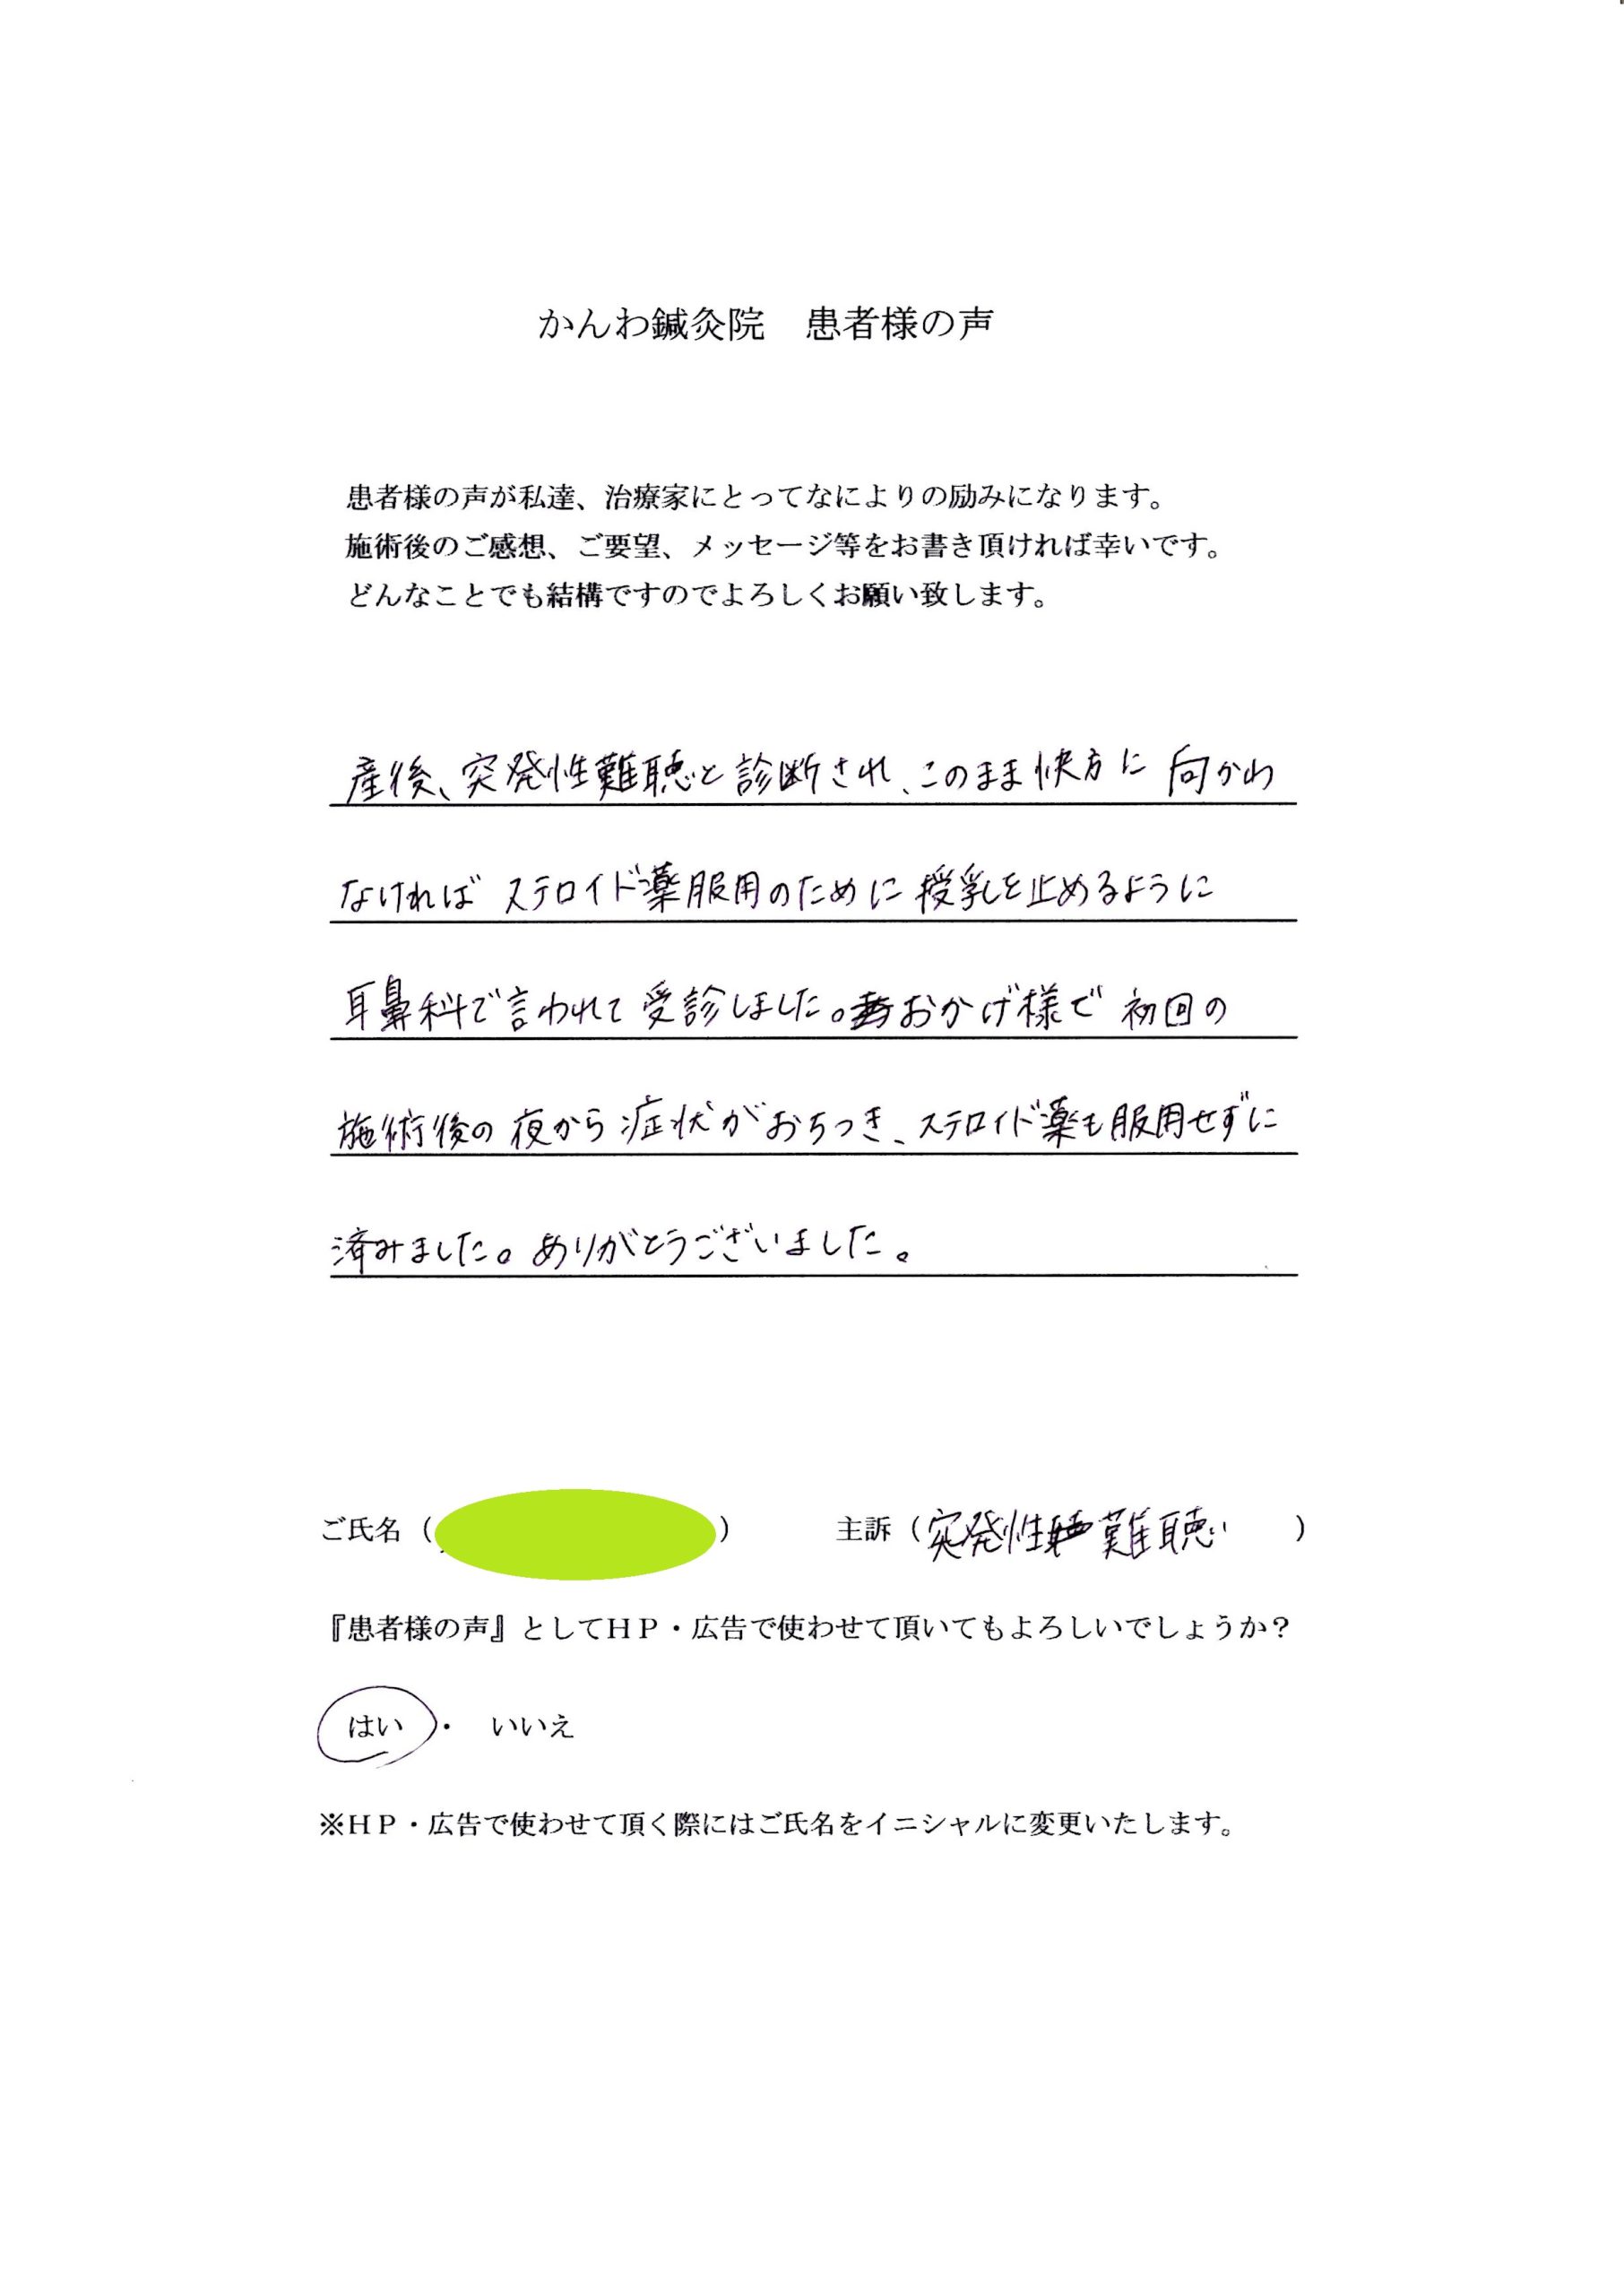 かんわ鍼灸院　患者様の声
患者様の声が私達、治療家にとってなによりの励みになります。
施術後のご感想、ご要望、メッセージ等をお書き頂ければ幸いです。
どんなことでも結構ですのでよろしくお願い致します。
産後、突発性難聴と診断され、このまま快方に向かわ
なければステロイド薬服用のために授乳を止めるように
耳鼻科で言われて受診しました。おかげ様で初回の
施術後の夜から症状がおちつき、ステロイド薬も服用せずに
済みました。ありがとうございました。
ご氏名（　　　　　）　　主訴（突発性難聴　）
『患者様の声』としてＨＰ・広告で使わせて頂いてもよろしいでしょうか？
はい・　いいえ
※ＨＰ・広告で使わせて頂く際にはご氏名をイニシャルに変更いたします。